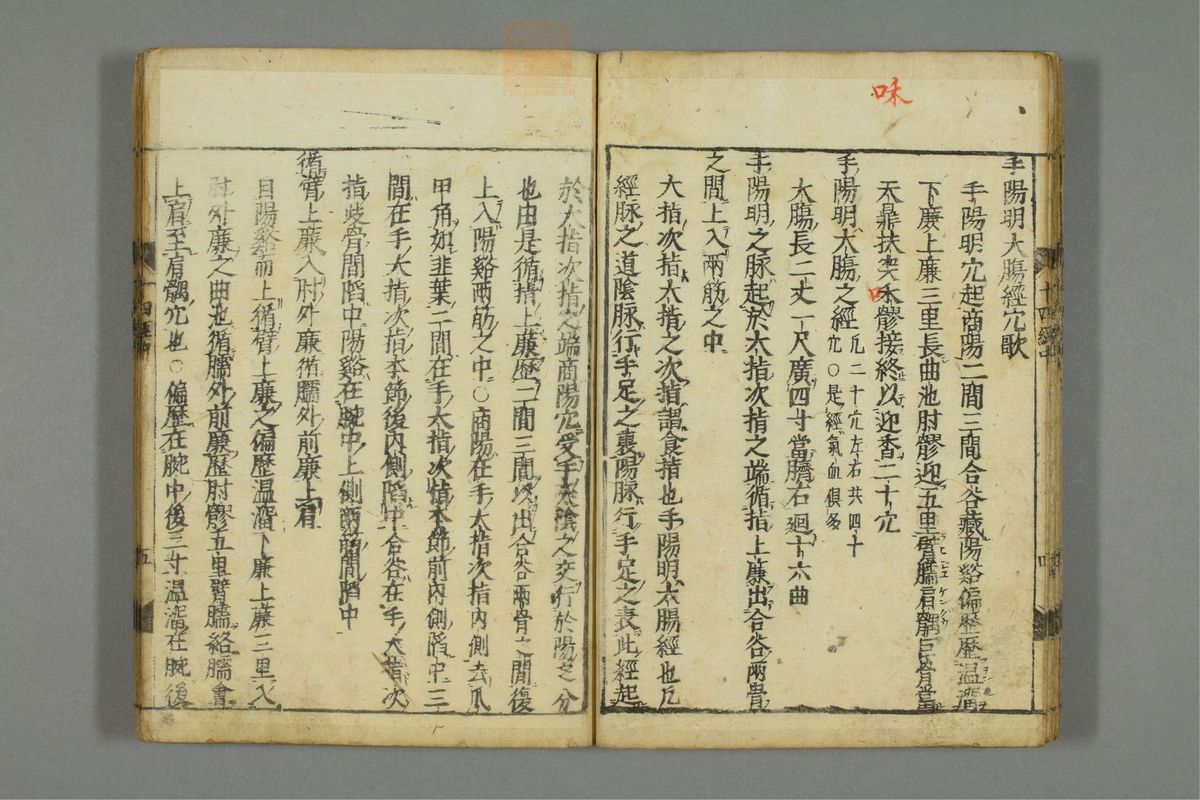 味
手陽明大膓經穴歌
手陽明穴起商陽二間三間合谷藏陽谿偏歷歷温溜
下廉上廉三里長曲池肘髎迎五里臂臑肩髃巨骨當
天鼎扶突禾髎接終以迎香二十穴
味
手陽明大膓之經凡二十穴左右共四十
穴○是經氣血俱多
大膓長二丈一尺廣四寸當臍右迴十六曲
手陽明之脉起於大指次指之端循指上廉出合谷兩骨
之間上入兩筋之中
大指次指大指之次指謂食指也手陽明大腸經也凡
經脉之道陰脉行手足之裏陽脉行手足之表此經起
於大指次指之端商陽穴受手太陰之交行於陽之分
也由是循指上廉歷二間三間以出合谷兩骨之間復
上入陽谿兩筋之中○商陽在手大指次指內側去爪
甲角如韭葉二間在手大指次指本節前內側陷中三
間在手大指次指本節後內側陷中合谷在手大指次
指歧骨間陷中陽谿在腕中上側兩筋間陷中
循臂上廉入肘外廉循臑外前廉上肩
自陽谿而上循臂上廉之偏歷温溜下廉上廉三里入
肘外廉之曲池循臑外前廉歷肘髎五里臂臑絡臑會
上肩至肩髃穴也○偏歷在腕中後三寸温溜在腕後
十四經中
四
五